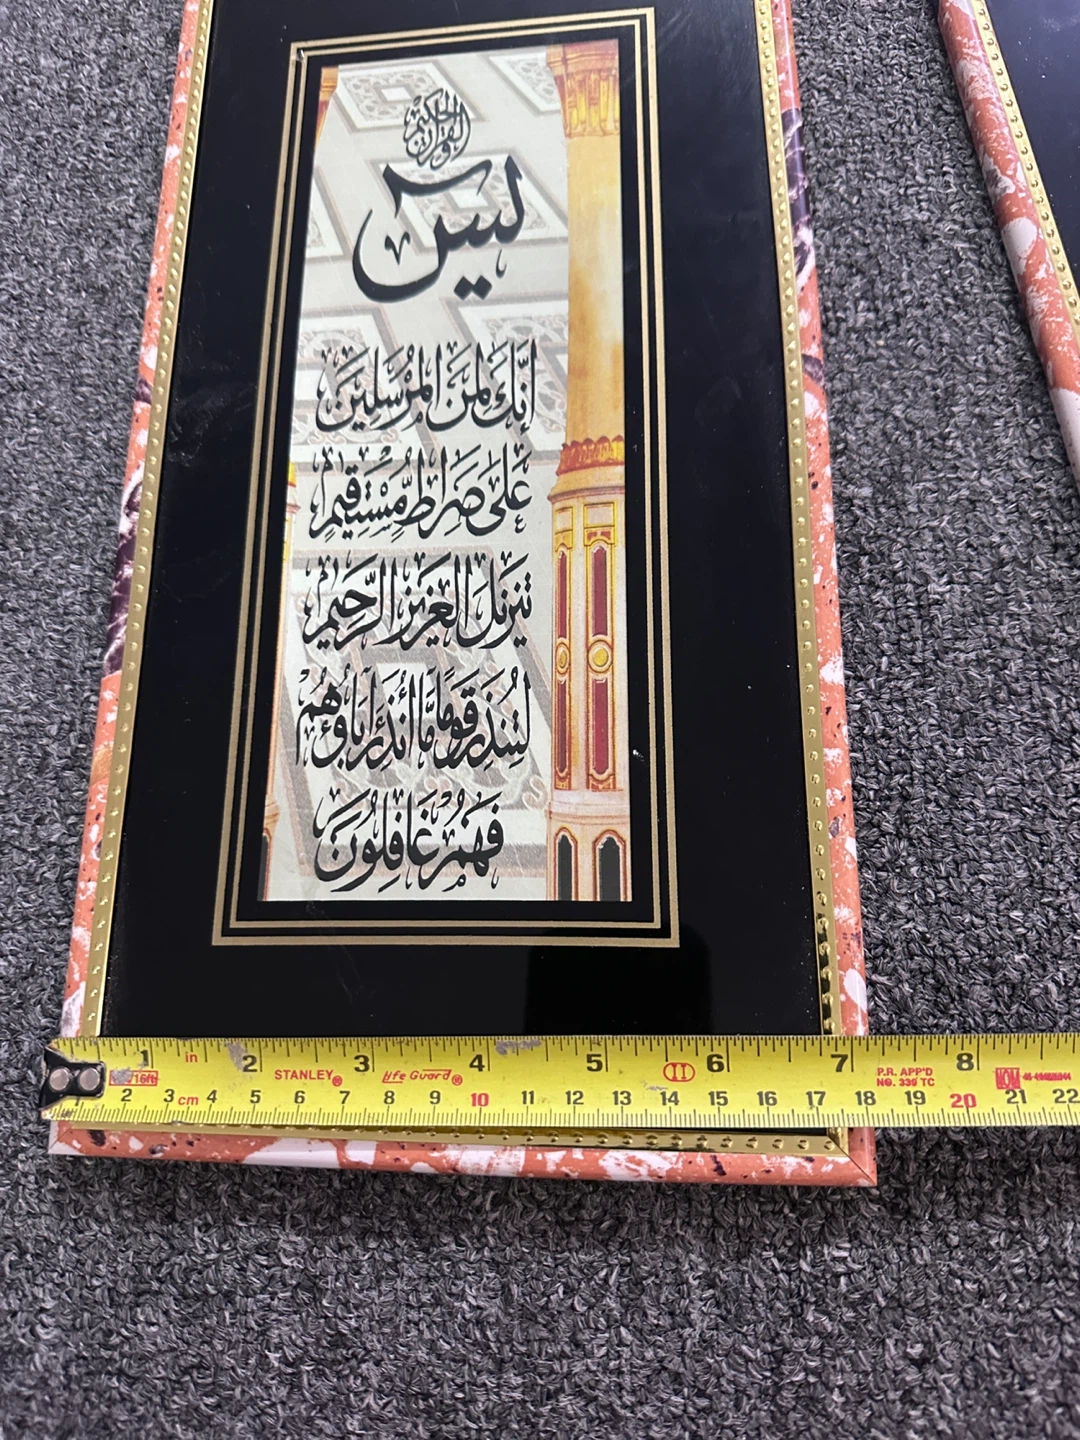 والقرآن الحكيم
يس
إِنَّكَ لَمِنَ الْمُرْسَلِينَ
عَلَى صِرَاطٍ مُّسْتَقِيمٍ
تَنزِيلَ الْعَزِيزِ الرَّحِيمِ
لِتُنذِرَ قَوْمًا مَّا أُنذِرَ آبَاؤُهُمْ
فَهُمْ غَافِلُونَ
1 in 2 3 4 5 6 7 8
16ft STANLEY® Life Guard® II P.R. APP'D
NO. 339 TC
2 3 cm 4 5 6 7 8 9 10 11 12 13 14 15 16 17 18 19 20 21 22